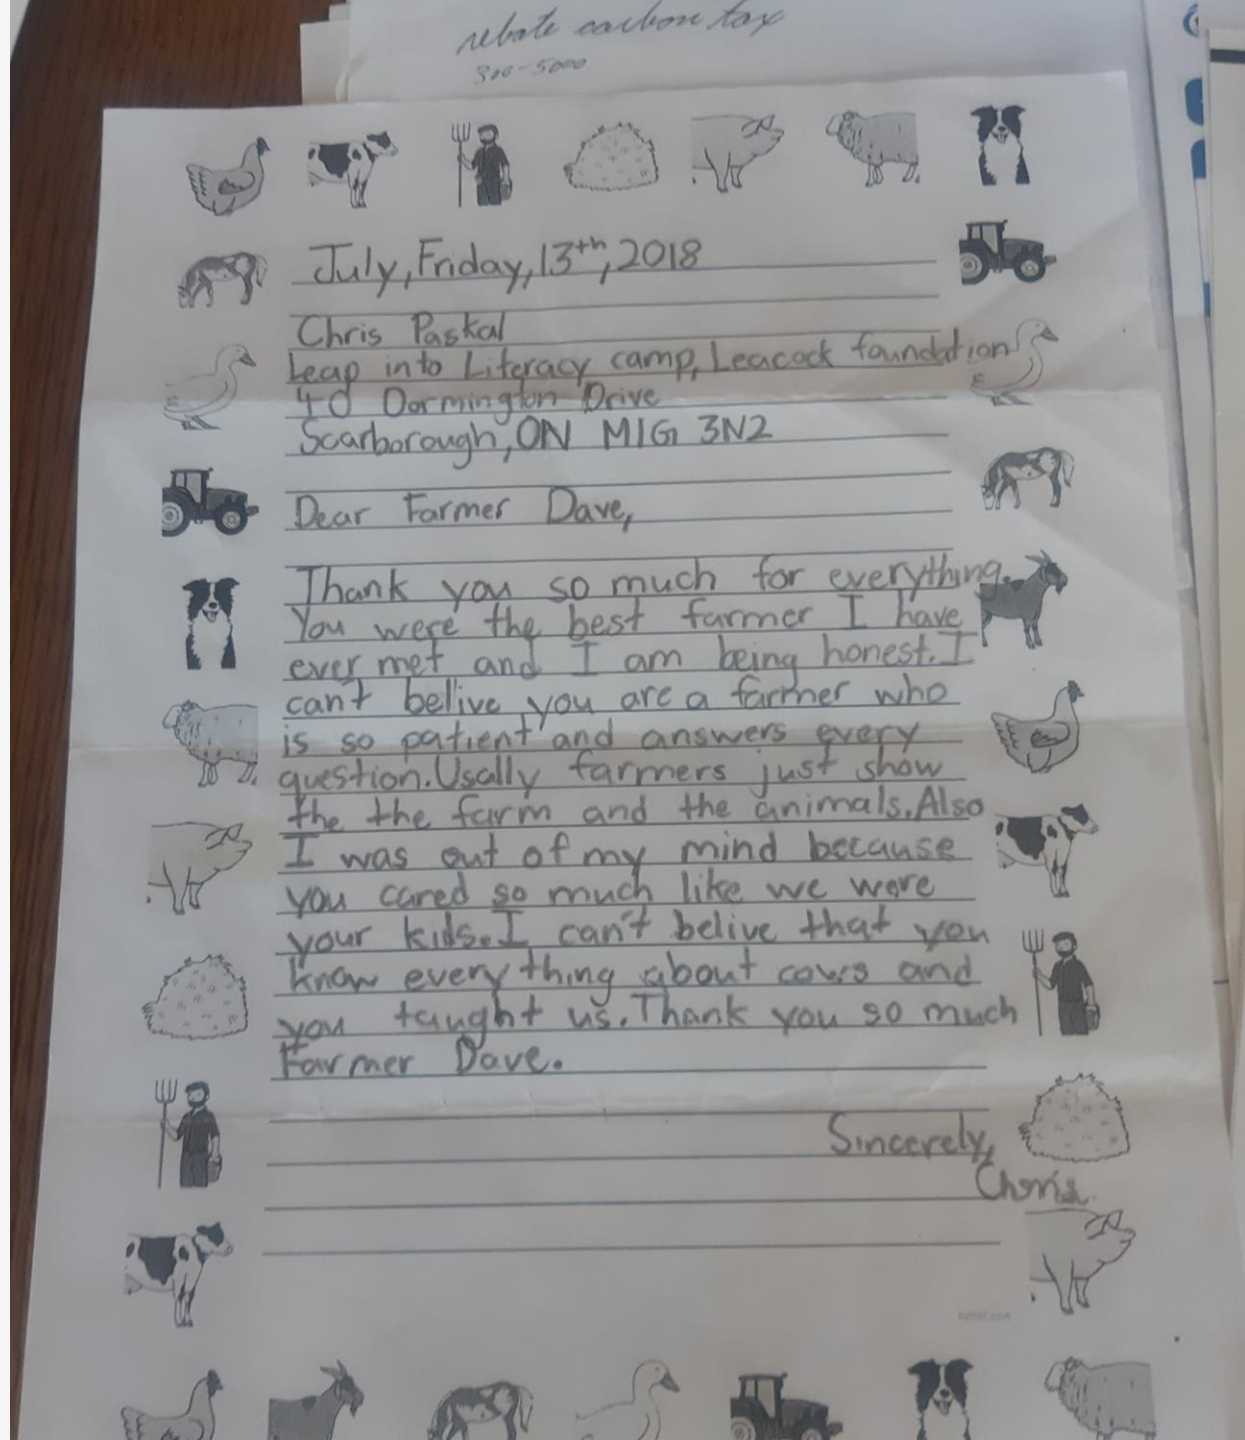 rebate carbon tax
300-5000
July, Friday, 13th, 2018
Chris Paskal
Leap into Literacy camp, Leacock foundation
40 Dormington Drive
Scarborough, ON M1G 3N2
Dear Farmer Dave,
Thank you so much for everything.
You were the best farmer I have
ever met and I am being honest. I
can't belive you are a farmer who
is so patient and answers every
question. Usally farmers just show
the the farm and the animals. Also
I was out of my mind because
you cared so much like we were
your kids. I can't belive that you
know everything about cows and
you taught us. Thank you so much
Farmer Dave.
Sincerely,
Chris